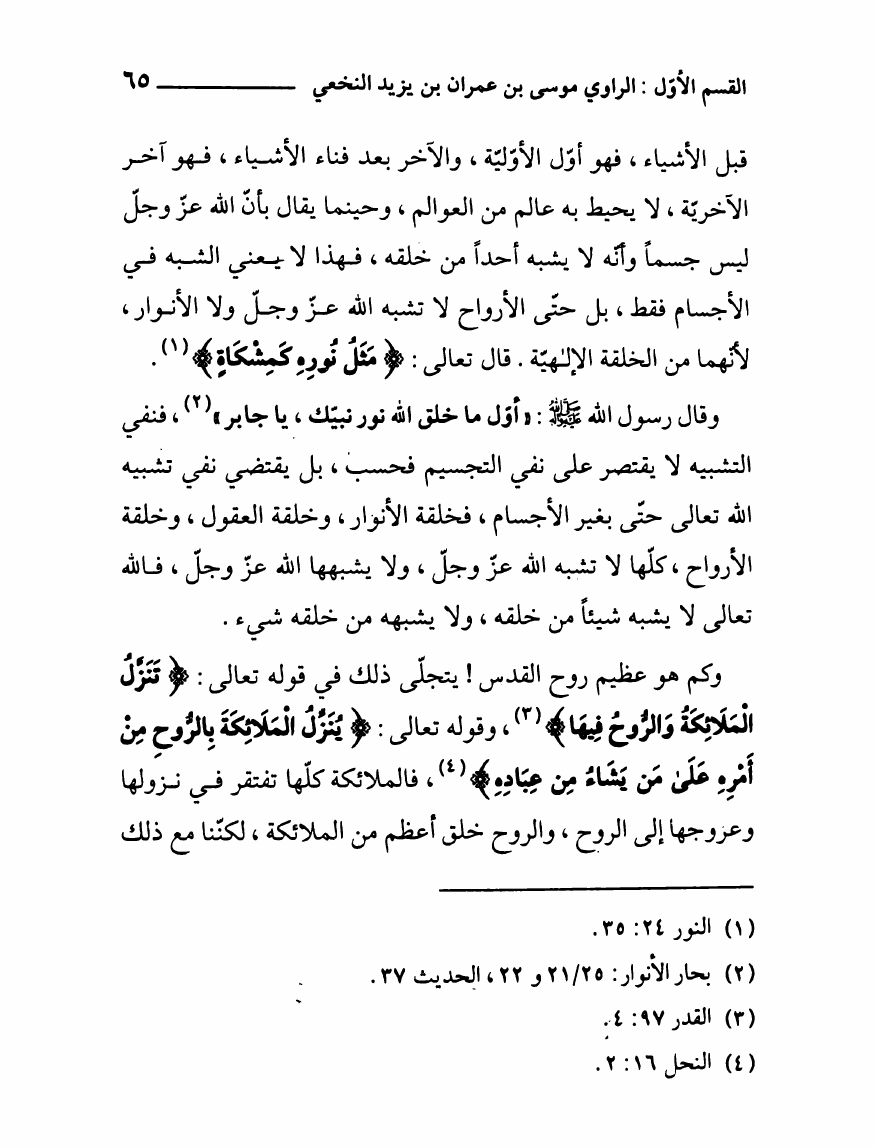 القسم الأوّل : الراوي موسى بن عمران بن يزيد النخعي ــــــــــــــــ ٦٥
قبل الأشياء ، فهو أوّل الأوّليّة ، والآخر بعد فناء الأشياء ، فهو آخر
الآخريّة ، لا يحيط به عالم من العوالم ، وحينما يقال بأنّ الله عزّ وجلّ
ليس جسماً وأنّه لا يشبه أحداً من خلقه ، فهذا لا يعني الشبه في
الأجسام فقط ، بل حتّى الأرواح لا تشبه الله عزّ وجلّ ولا الأنوار ،
لأنّهما من الخلقة الإلٰهيّة . قال تعالى : ﴿ مَثَلُ نُورِهِ كَمِشْكَاةٍ ﴾(١) .
وقال رسول الله ﷺ : « أوّل ما خلق الله نور نبيّك ، يا جابر »(٢) ، فنفي
التشبيه لا يقتصر على نفي التجسيم فحسب ، بل يقتضي نفي تشبيه
الله تعالى حتّى بغير الأجسام ، فخلقة الأنوار ، وخلقة العقول ، وخلقة
الأرواح ، كلّها لا تشبه الله عزّ وجلّ ، ولا يشبهها الله عزّ وجلّ ، فالله
تعالى لا يشبه شيئاً من خلقه ، ولا يشبهه من خلقه شيء .
وكم هو عظيم روح القدس ! يتجلّى ذلك في قوله تعالى : ﴿ تَنَزَّلُ
الْمَلَائِكَةُ وَالرُّوحُ فِيهَا ﴾(٣) ، وقوله تعالى : ﴿ يُنَزِّلُ الْمَلَائِكَةَ بِالرُّوحِ مِنْ
أَمْرِهِ عَلَىٰ مَن يَشَاءُ مِن عِبَادِهِ ﴾(٤) ، فالملائكة كلّها تفتقر في نزولها
وعروجها إلى الروح ، والروح خلق أعظم من الملائكة ، لكنّنا مع ذلك
(١) النور ٢٤: ٣٥.
(٢) بحار الأنوار : ٢١/٢٥ و ٢٢ ، الحديث ٣٧ .
(٣) القدر ٩٧: ٤.
(٤) النحل ١٦: ٢.